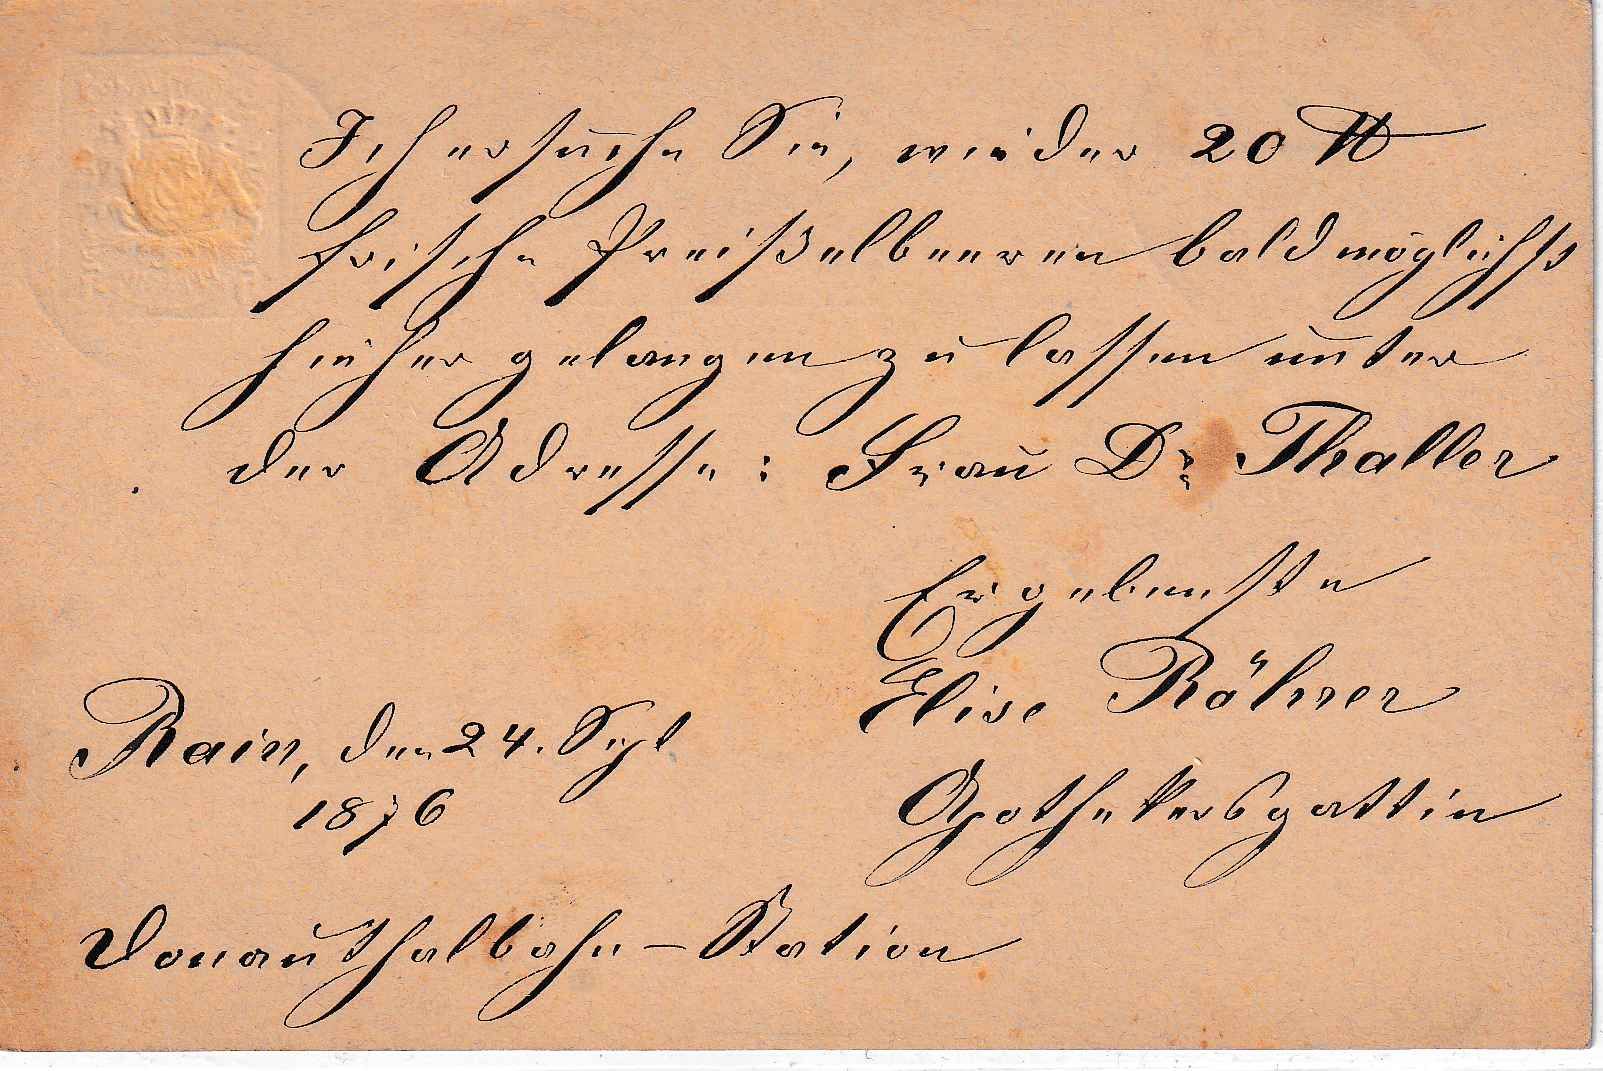 Ich ersuche Sie, wieder 20 ℔
frische Preißelbeeren baldmöglichst
hieher gelangen zu lassen unter
der Adresse: Frau Dr Thaller
Ergebenste
Elise Röhrer
Rain, den 24. Sept
1876
Apothekersgattin
Donauthalbahn-Station